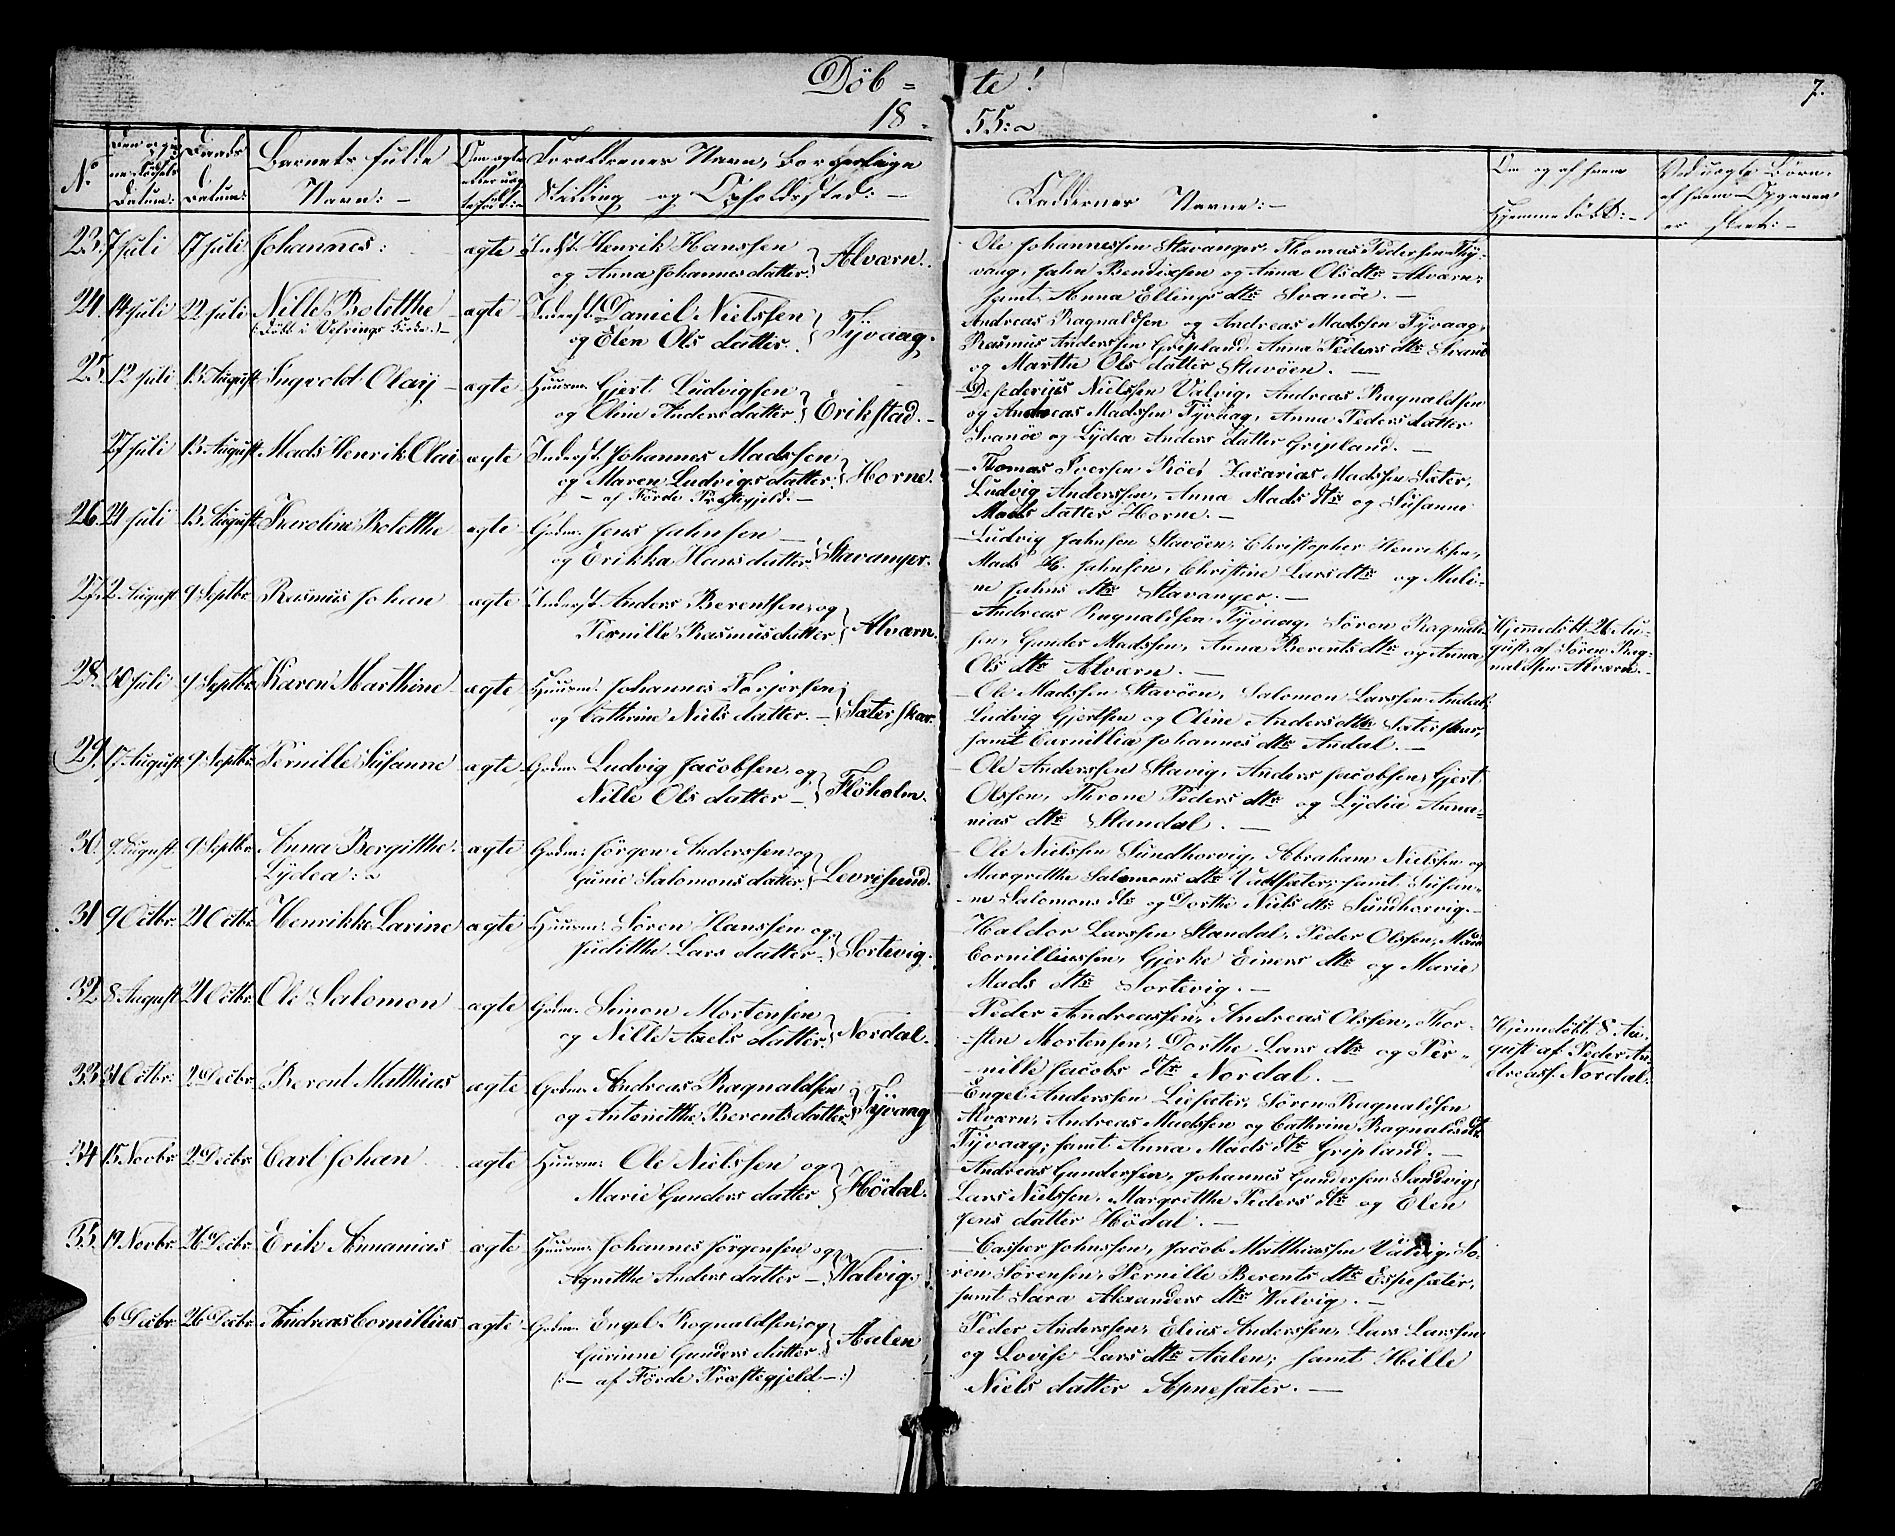 Döb = te!
7.
18 55:~
No
Datum:
Daabs Datum:
Barnets fulde Navn: -
Om ægte eller uægte født: -
Forældrenes Navn, Borgerlige Stilling og Opholdssted: -
Faddernes Navne: -
Om og af hvem Hjemmedöbt: -
Ved uægte Börn, af hvem Opgaven er skeet: -
23. 7 Juli 17 Juli Johannes: ægte Inderst. Henrik Hanssen
og Anna Johannesdatter } Alværn.
Ole Johannessen Stavanger, Thomas Pedersen Tyvaag, Jahn Bendixsen og Anna Olsdtr Alværn,
samt Anna Ellings dtr Svanöe. -
24. 14 Juli 22 Juli Nille Bolethe ægte Inderst. Daniel Nielssen
(Döbt i Vefrings Kirke.)
og Elen Ols datter. } Tyvaag.
Andreas Ragnaldsen og Andreas Madssen Tyvaag,
Rasmus Anderssen Gripland, Anna Peders dtr Svanö
og Marthe Ols datter Stavöen. -
25. 12 Juli 13 August Ingvold Olaij - ægte Huusm. Gjert Ludvigsen
og Oline Andersdatter } Erikstad. -
Desederius Nielssen Valvig, Andreas Ragnaldsen
og Andreas Madssen Tyvaag, Anna Pedersdatter
Svanöe og Lydea Anders datter Gripland. -
27 Juli 13 August Mads Henrik Olai ægte Inderst. Johannes Madssen
og Maren Ludvigsdatter } Horne.
- af Förde Præstegjeld. -
Thomas Iversen Röe, Zacarias Madssen Sæter,
Ludvig Anderssen, Anna Mads dtr og Susanne
Mads datter Horne. -
26. 24 Juli 13 August Karoline Bolethe ægte Grdm. Jens Jahnsen -
og Erikka Hansdatter } Stavanger.
Ludvig Jahnsen Stavöen, Christopher Henriksen,
Mads H. Jahnsen, Christine Larsdtr og Mali-
ne Jahns dtr Stavanger. -
27. 2 August 9 Septbr. Rasmus Johan ægte Inderst. Anders Berentsen og
Pernille Rasmusdatter } Alværn.
Andreas Ragnaldsen Tyvaag, Sören Ragnald-
sen, Gunder Madssen, Anna Berents dtr og Anna
Ols dtr Alværn. -
Hjemmedöbt 26 Au-
gust af Sören Rag-
naldsen Alværn. -
28. 30 Juli 9 Septbr. Karen Marthine ægte Huusm. Johannes Torjersen
og Cathrine Niels datter. - } Sæterskar.
Ole Madssen Stavöen, Salomon Larssen Andal,
Ludvig Gjertsen og Oline Andersdtr Sæterskar,
samt Cornillia Johannes dtr Andal. -
29. 17 August 9 Septbr. Pernille Susanne ægte Grdm. Ludvig Jacobsen og
Nille Ols datter - } Flöholm.
Ole Anderssen Stavig, Anders Jacobsen, Gjert
Olssen, Throne Peders dtr og Lydia Anna-
nias dtr Standal. -
30. 9 August 9 Septbr. Anna Bergitthe ægte Grdm. Jörgen Anderssen og
Lydea: ~
Gunie Salomonsdatter } Levrisund.
Ole Nielssen Sundhorvig, Abraham Nielssen og
Margrethe Salomons dtr samt Susan-
ne Salomons dtr og Dorthe Niels dtr Sundhorvig. -
31. 9 Octbr. 21 Octbr. Henrikke Larine ægte Huusm. Sören Hanssen og
Judithe Lars datter - } Sortevig.
Haldor Larssen Standal, Peder Olssen, Mads
Cornilliussen, Gjerke Einers dtr og Marie
Mads dtr Sortevig. -
32. 8 August 21 Octbr. Ole Salomon ægte Grdm. Simon Mortensen
og Nille Axels datter } Nordal.
Peder Andreassen, Andreas Olssen, Thor-
sten Mortensen, Dorthe Lars dtr og Per-
nille Jacobs dtr Nordal. -
Hjemmedöbt 8 Au-
gust af Peder An-
dreass. Nordal.
33. 31 Octbr. 2 Decbr. Berent Matthias ægte Grdm. Andreas Ragnaldsen
og Antonetthe Berentsdatter } Tyvaag
Engel Anderssen Liesæter, Sören Ragnaldsen
Alværn, Andreas Madssen og Cathrine Ragnaldsdtr
Tyvaag; samt Anna Mads dtr Gripland. -
34 15 Novbr. 2 Decbr. Carl Johan ægte Huusm. Ole Nielssen og
Marie Gunders datter } Hödal.
Andreas Gundersen, Johannes Gundersen Sandvig,
Lars Nielssen, Margrethe Peders dtr og Elen
Jens datter Hödal. -
35. 19 Novbr. 26 Decbr. Erik Annanias ægte Huusm. Johannes Jörgensen og
Agnethe Anders datter - } Valvig
Casper Johnssen, Jacob Matthiassen Valvig, Sö-
ren Sörensen, Pernille Berents dtr Espesæter,
samt Sara Alexanders dtr Valvig. -
6 Decbr. 26 Decbr. Andreas Cornillius ægte Grdm. Engel Ragnaldsen og
Gurinne Gunders datter } Aalen
(: - af Förde Præstegjeld - :)
Peder Anderssen, Elias Anderssen, Lars Larssen
og Lovise Lars dtr Aalen; samt Hille
Niels datter Apnesæter. -